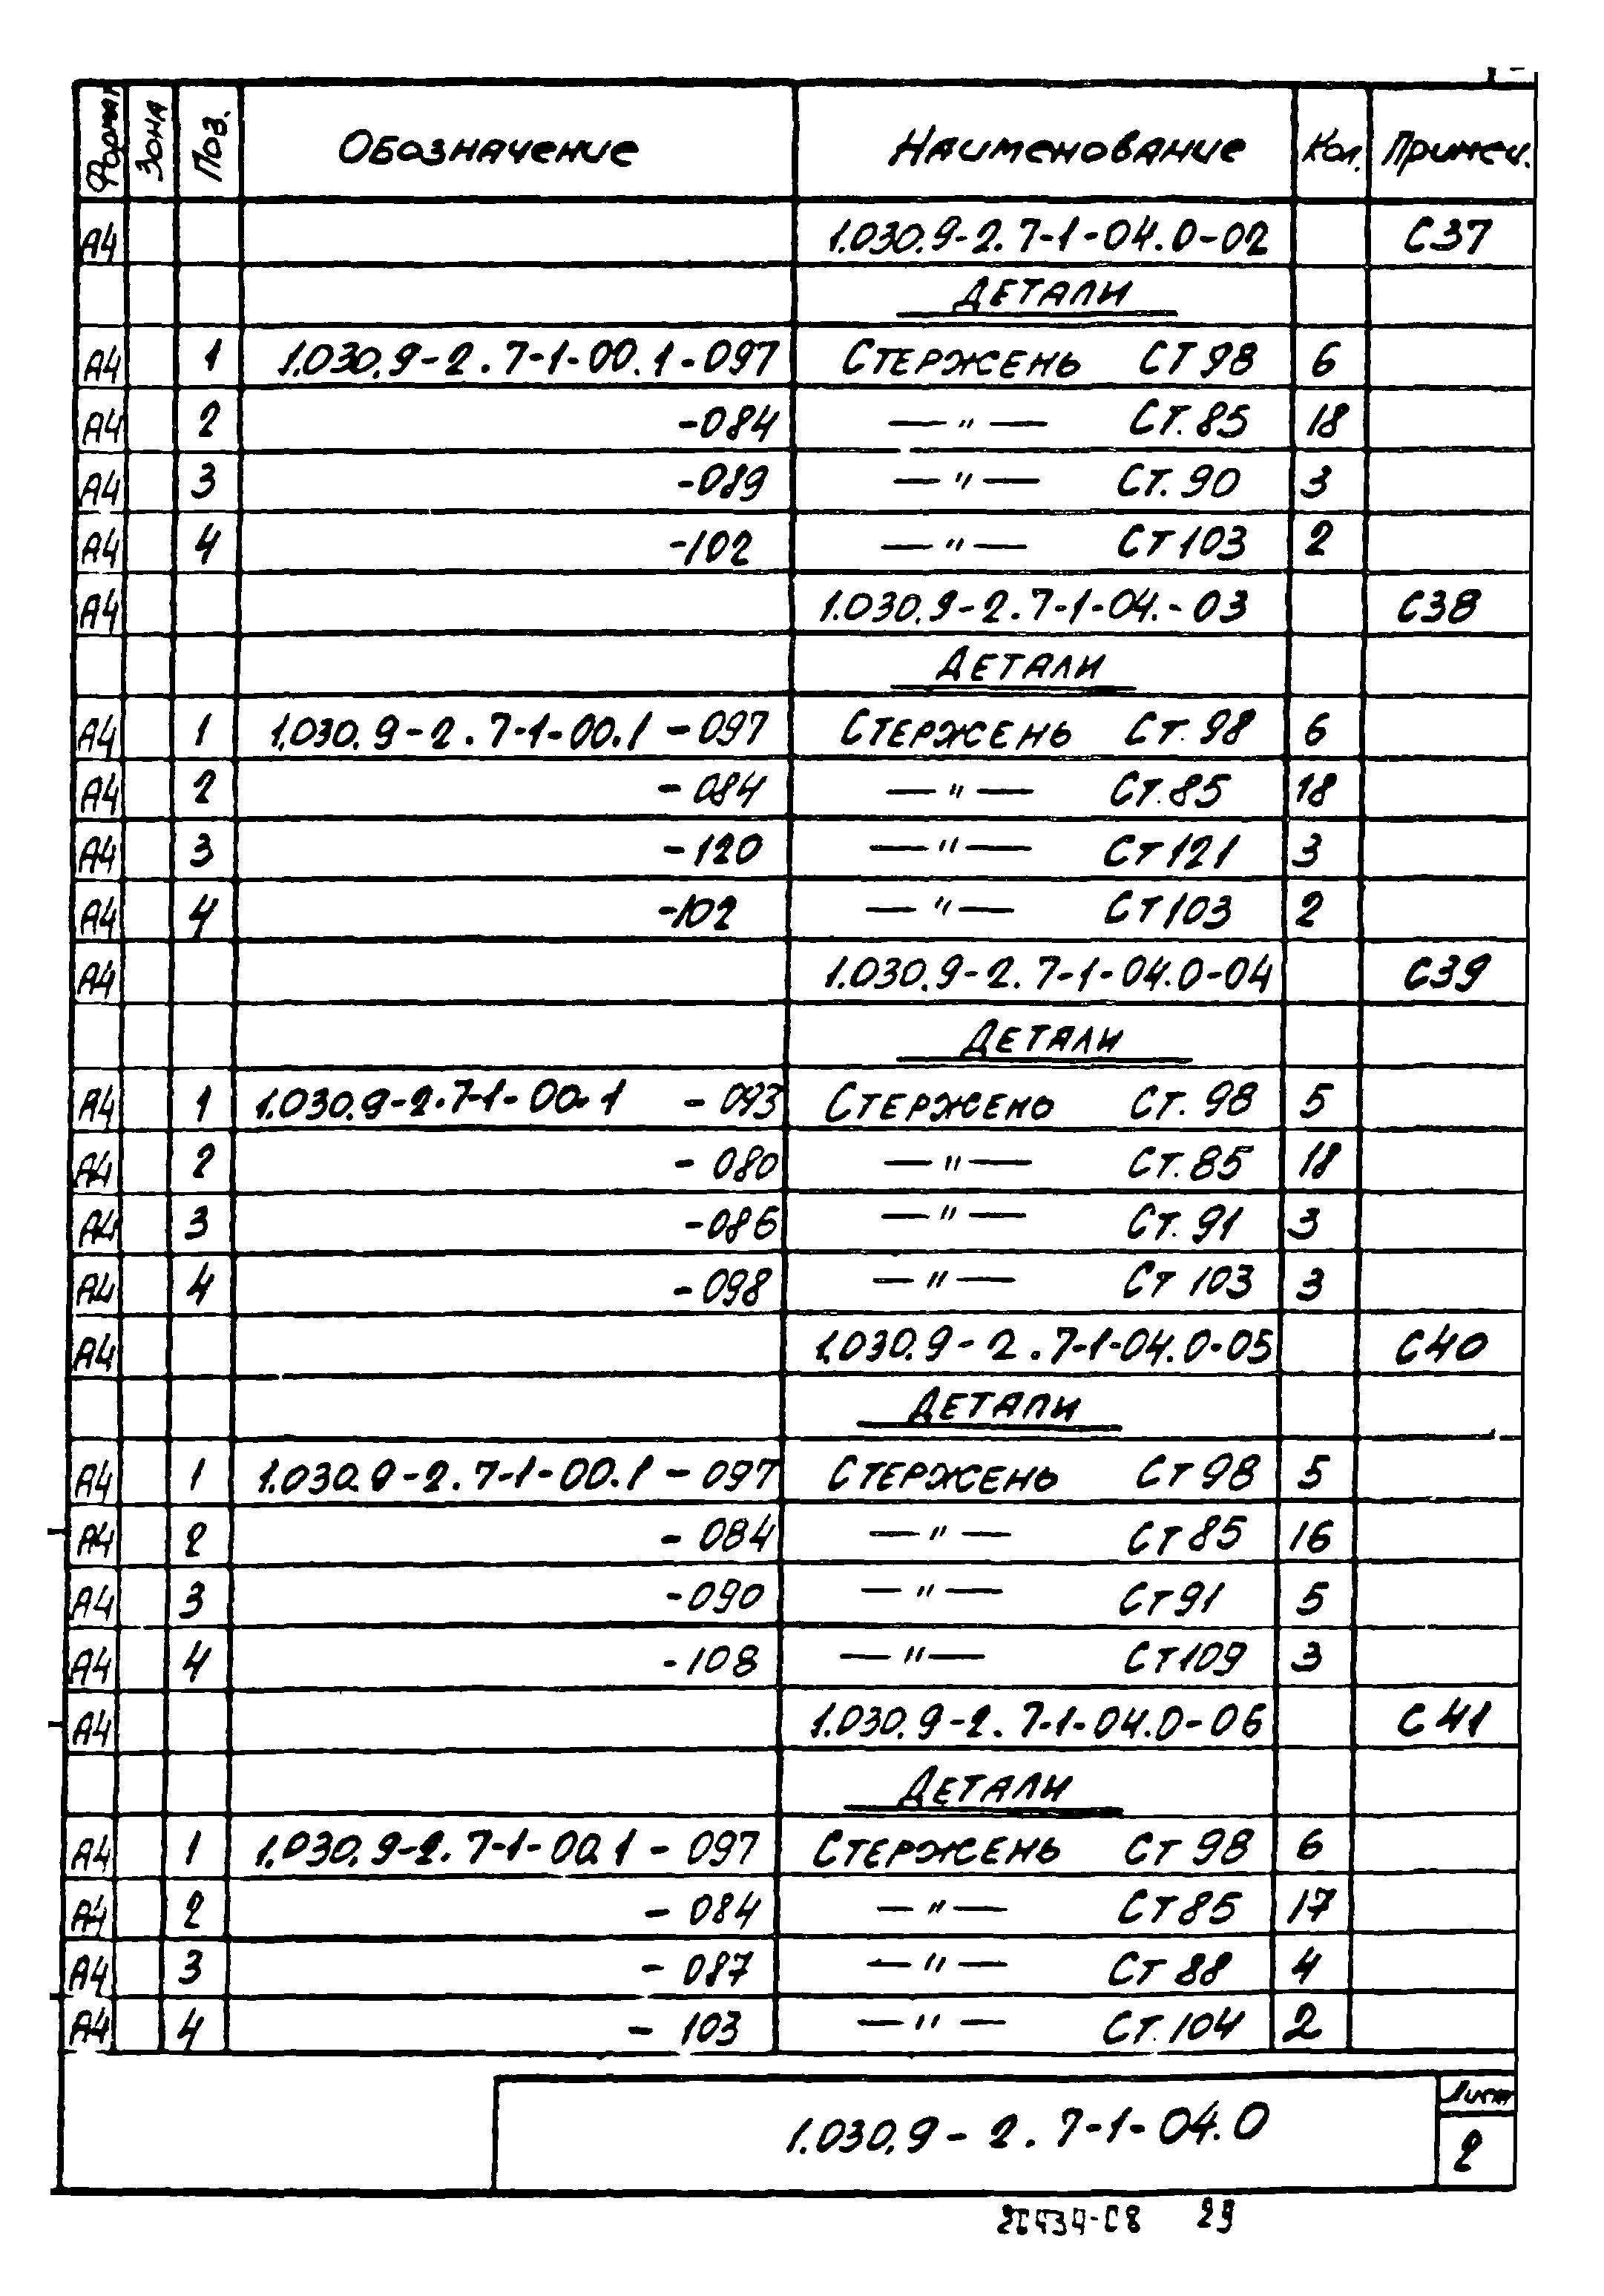 Формат Зона Поз. Обозначение Наименование Кол. Примеч.
А4 1.030.9-2.7-1-04.0-02 С37
Детали
А4 1 1.030.9-2.7-1-00.1-097 Стержень Ст98 6
А4 2 -084 —"— Ст.85 18
А4 3 -089 —"— Ст.90 3
А4 4 -102 —"— Ст103 2
А4 1.030.9-2.7-1-04.-03 С38
Детали
А4 1 1.030.9-2.7-1-00.1-097 Стержень Ст.98 6
А4 2 -084 —"— Ст.85 18
А4 3 -120 —"— Ст121 3
А4 4 -102 —"— Ст103 2
А4 1.030.9-2.7-1-04.0-04 С39
Детали
А4 1 1.030.9-2.7-1-00.1 -093 Стержень Ст.98 5
А4 2 -080 —"— Ст.85 18
А4 3 -086 —"— Ст.91 3
А4 4 -098 —"— Ст103 3
А4 1.030.9-2.7-1-04.0-05 С40
Детали
А4 1 1.030.9-2.7-1-00.1-097 Стержень Ст98 5
А4 2 -084 —"— Ст85 16
А4 3 -090 —"— Ст91 5
А4 4 -108 —"— Ст109 3
А4 1.030.9-2.7-1-04.0-06 С41
Детали
А4 1 1.030.9-2.7-1-00.1-097 Стержень Ст98 6
А4 2 -084 —"— Ст85 17
А4 3 -087 —"— Ст88 4
А4 4 -103 —"— Ст.104 2
1.030.9-2.7-1-04.0
Лист
2
20434-08 29